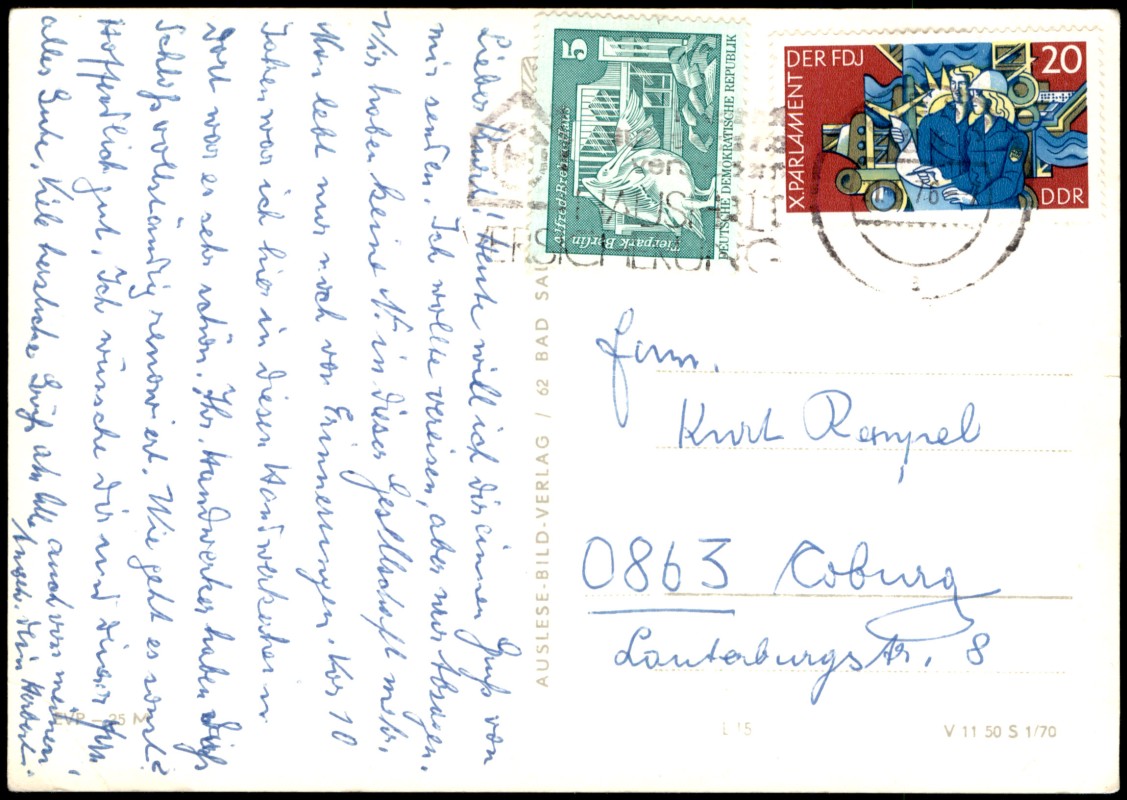 Lieber Kurt! Heute will ich dir einen Gruß von
mir senden. Ich wollte verreisen, aber nur Absagen.
Wir haben keine N. in dieser Gesellschaft mehr.
Man lebt nur noch von Erinnerungen. Vor 10
Jahren war ich hier in diesen
Dort war es sehr schön. Ihr. Handwerker haben dieß
Schloß vollständig renoviert. Wie geht es sonst?
Hoffentlich gut. Ich wünsche dir und deiner
alles Gute. Viele herzliche Grüße an alle auch von meinen
dein Herbert.
EVP –25 M
AUSLESE-BILD-VERLAG / 62 BAD SAL
5
Alfred-Brehm-Haus
Tierpark Berlin
DEUTSCHE DEMOKRATISCHE REPUBLIK
X. PARLAMENT DER FDJ
20
DDR
VERSICHERUNG
Herrn.
Kurt Rempel
0863 Coburg
Lauterburgstr. 8
L 15
V 11 50 S 1/70